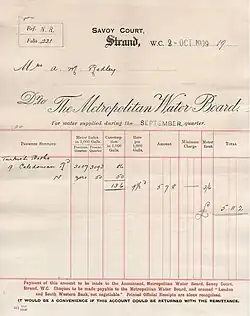 Ref. N.R.
Folio 221
SAVOY COURT,
Strand, W.C. 2 - OCT. 1909 19
Mrs A. M. Radley
Dr. to The Metropolitan Water Board.
For water supplied during the SEPTEMBER quarter.
PREMISES SUPPLIED Meter Index in 1,000 Galls. Consumption in 1,000 Galls. Rate per 1,000 Galls. AMOUNT Minimum Charge Meter Rent TOTAL
Turkish Baths
9 Caledonian Rd
136
5 7 8
£ 5
Payment of this amount to be made to the Accountant, Metropolitan Water Board, Savoy Court,
Strand, W.C. Cheques to be made payable to the Metropolitan Water Board, and crossed "London
and South Western Bank, not negotiable." Printed Official Receipts are alone recognised.
IT WOULD BE A CONVENIENCE IF THIS ACCOUNT COULD BE RETURNED WITH THE REMITTANCE.